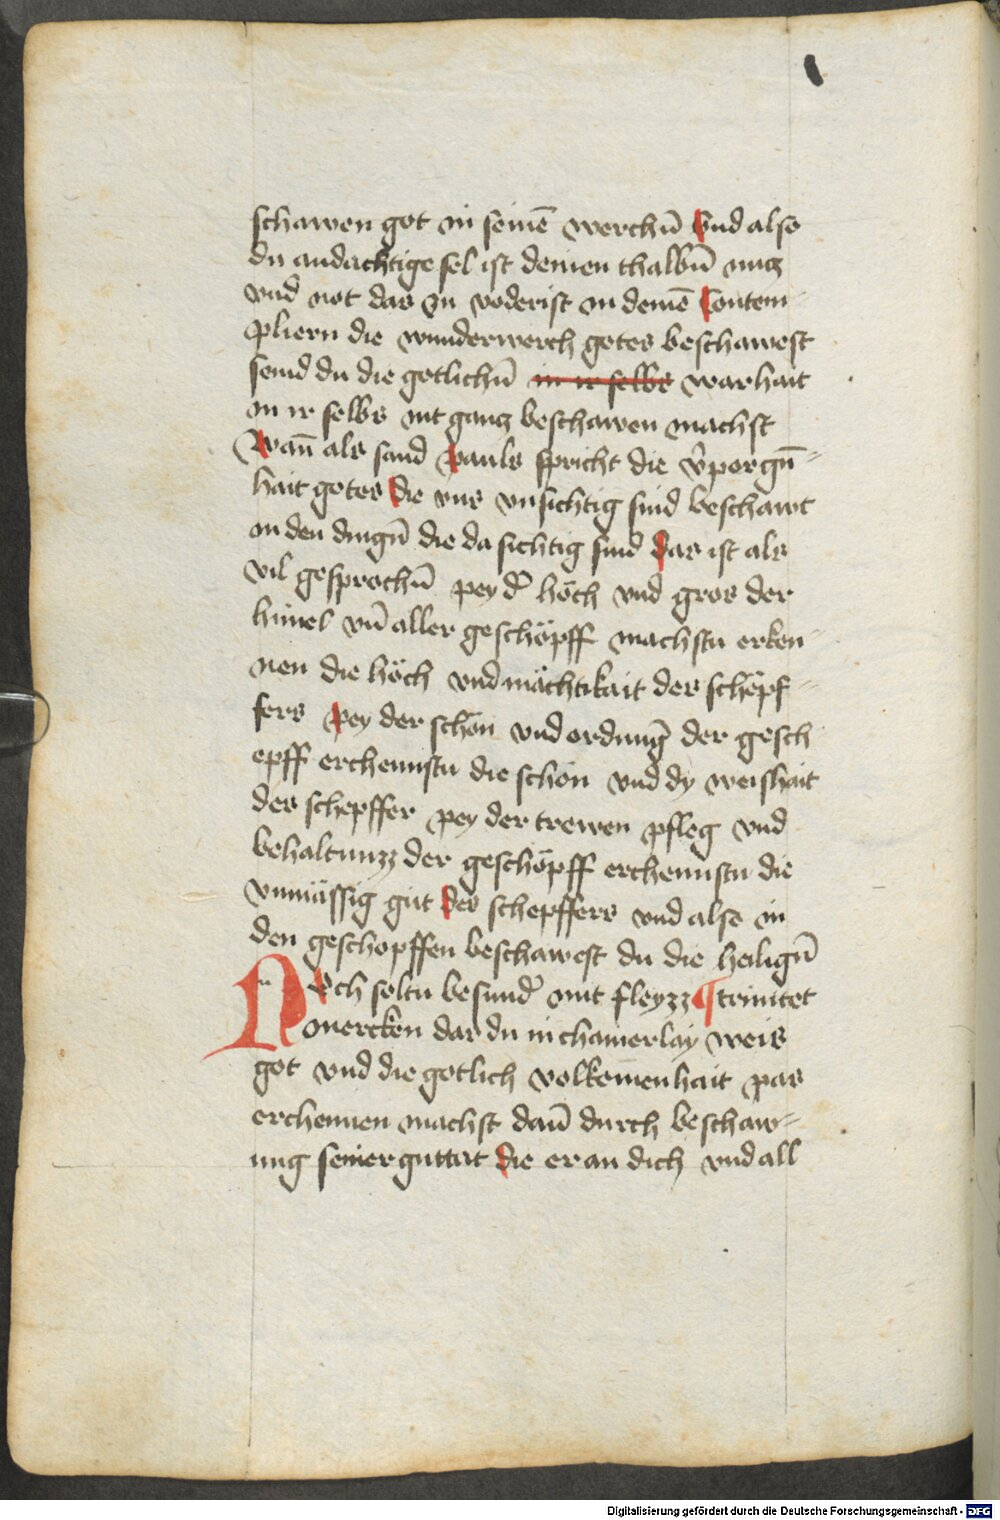 schawen got in seinē werchn̄ Vnd also
du andachtige sel ist deinen thalbn̄ nucz
vnd not das zu voderist in deinē Contem-
pliern die wunderwerch gotes beschawest
seind du die gotlichn̄ in ir selbs warhait
in ir selbs nit gancz beschawen machst
Wan̄ als sand Pauls spricht die v̄porgn̄-
hait gotes die vns vnsichtig sind beschawt
in den dingn̄ die da sichtig sind Das ist als
vil gesprochn̄ pey d̄ höch vnd gros der
himel vn̄ aller geschöpff machstu erken-
nen die höch vnd mächtikait des schepf-
fers pey der schön vnd ordnūg der gesch
epff erchennstu die schön vnd dy weishait
des schepffer pey der trewen pfleg vnd
behaltunzz der geschöpff erchennstu die
vnmässig güt des schepffers vnd also in
den geschopffen beschawest du die heilign̄
Noch soltu besund̄ mit fleyzz ¶ trinitet
mercken das du in chainerlay weis
got vnd die gotlich volkomenhait pas
erchennen machst dan̄ durch beschaw-
ung seiner guttat die er an dich vnd all
Digitalisierung gefördert durch die Deutsche Forschungsgemeinschaft - DFG